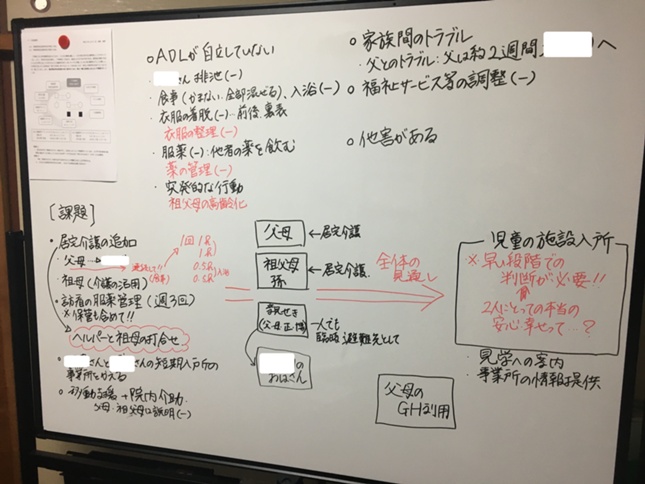 ○ADLが自立していない
・さん 排泄(ー)
・食事(かまない、全部混ぜる)、入浴(ー)
・衣服の着脱(ー)…前後、裏表
衣服の整理(ー)
・服薬(ー):他者の薬を飲む
薬の管理(ー)
・突発的な行動
祖父母の高齢化
○家族間のトラブル
・父とのトラブル:父は約2週間 へ
○福祉サービス等の調整(ー)
○他害がある
[課題]
・居宅介護の追加
・父母
・祖母(介護の活用)
・訪看の服薬管理(週3回)
※保管も含めて!!
ヘルパーと祖母の打合せ
・さんと さんの短期入所の
事業所をかえる
・移動支援+院内介助
父母・祖父母に説明(ー)
1回 1R
1R
0.5R
0.5R
入浴
(食事)
父母 ←居宅介護
祖父母
孫
←居宅介護
(父母正博)
一人でも
臨時避難先として
の
おばさん
全体の
見直し
父母の
GH利用
児童の施設入所
※早い段階での
判断が必要!!
2人にとっての本当の
安心・幸せって…?
・見学への案内
・事業所の情報提供